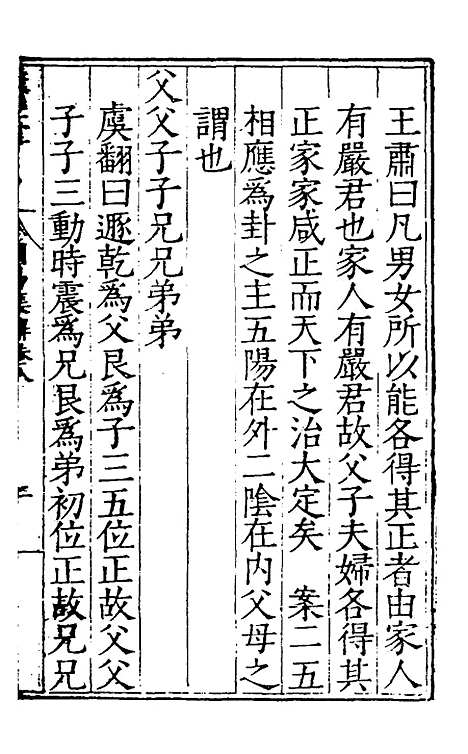 王肅曰凡男女所以能各得其正者由家人
有嚴君也家人有嚴君故父子夫婦各得其
正家家咸正而天下之治大定矣　案二五
相應爲卦之主五陽在外二陰在内父母之
謂也
父父子子兄兄弟弟
虞翻曰遯乾爲父艮爲子三五位正故父父
子子三動時震爲兄艮爲弟初位正故兄兄